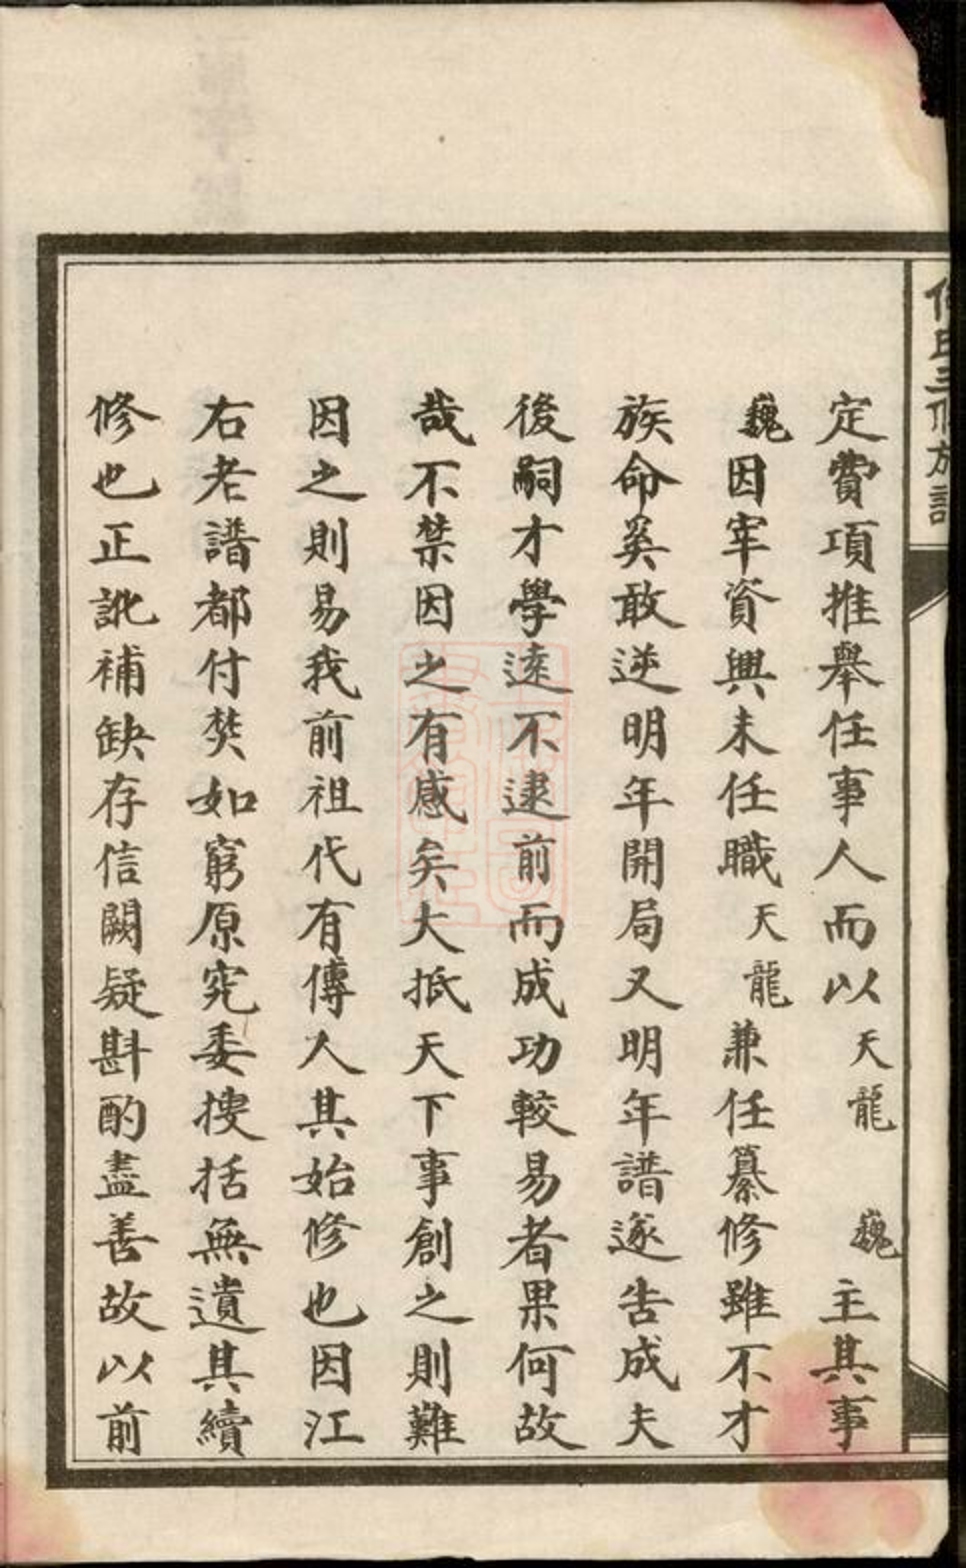 氏三修族譜
定費項推舉任事人而以天龍巍主其事
巍因牢資興未任職天龍兼任纂修雖不才
族命奚敢逆明年開局又明年譜遂告成夫
後嗣才學遠不逮前而成功較易者果何故
哉不禁因之有感矣大抵天下事創之則難
因之則易我前祖代有傳人其始修也因江
右老譜都付焚如窮原究委摟括無遺其續
修也正訛補缺存信闕疑斟酌盡善故以前